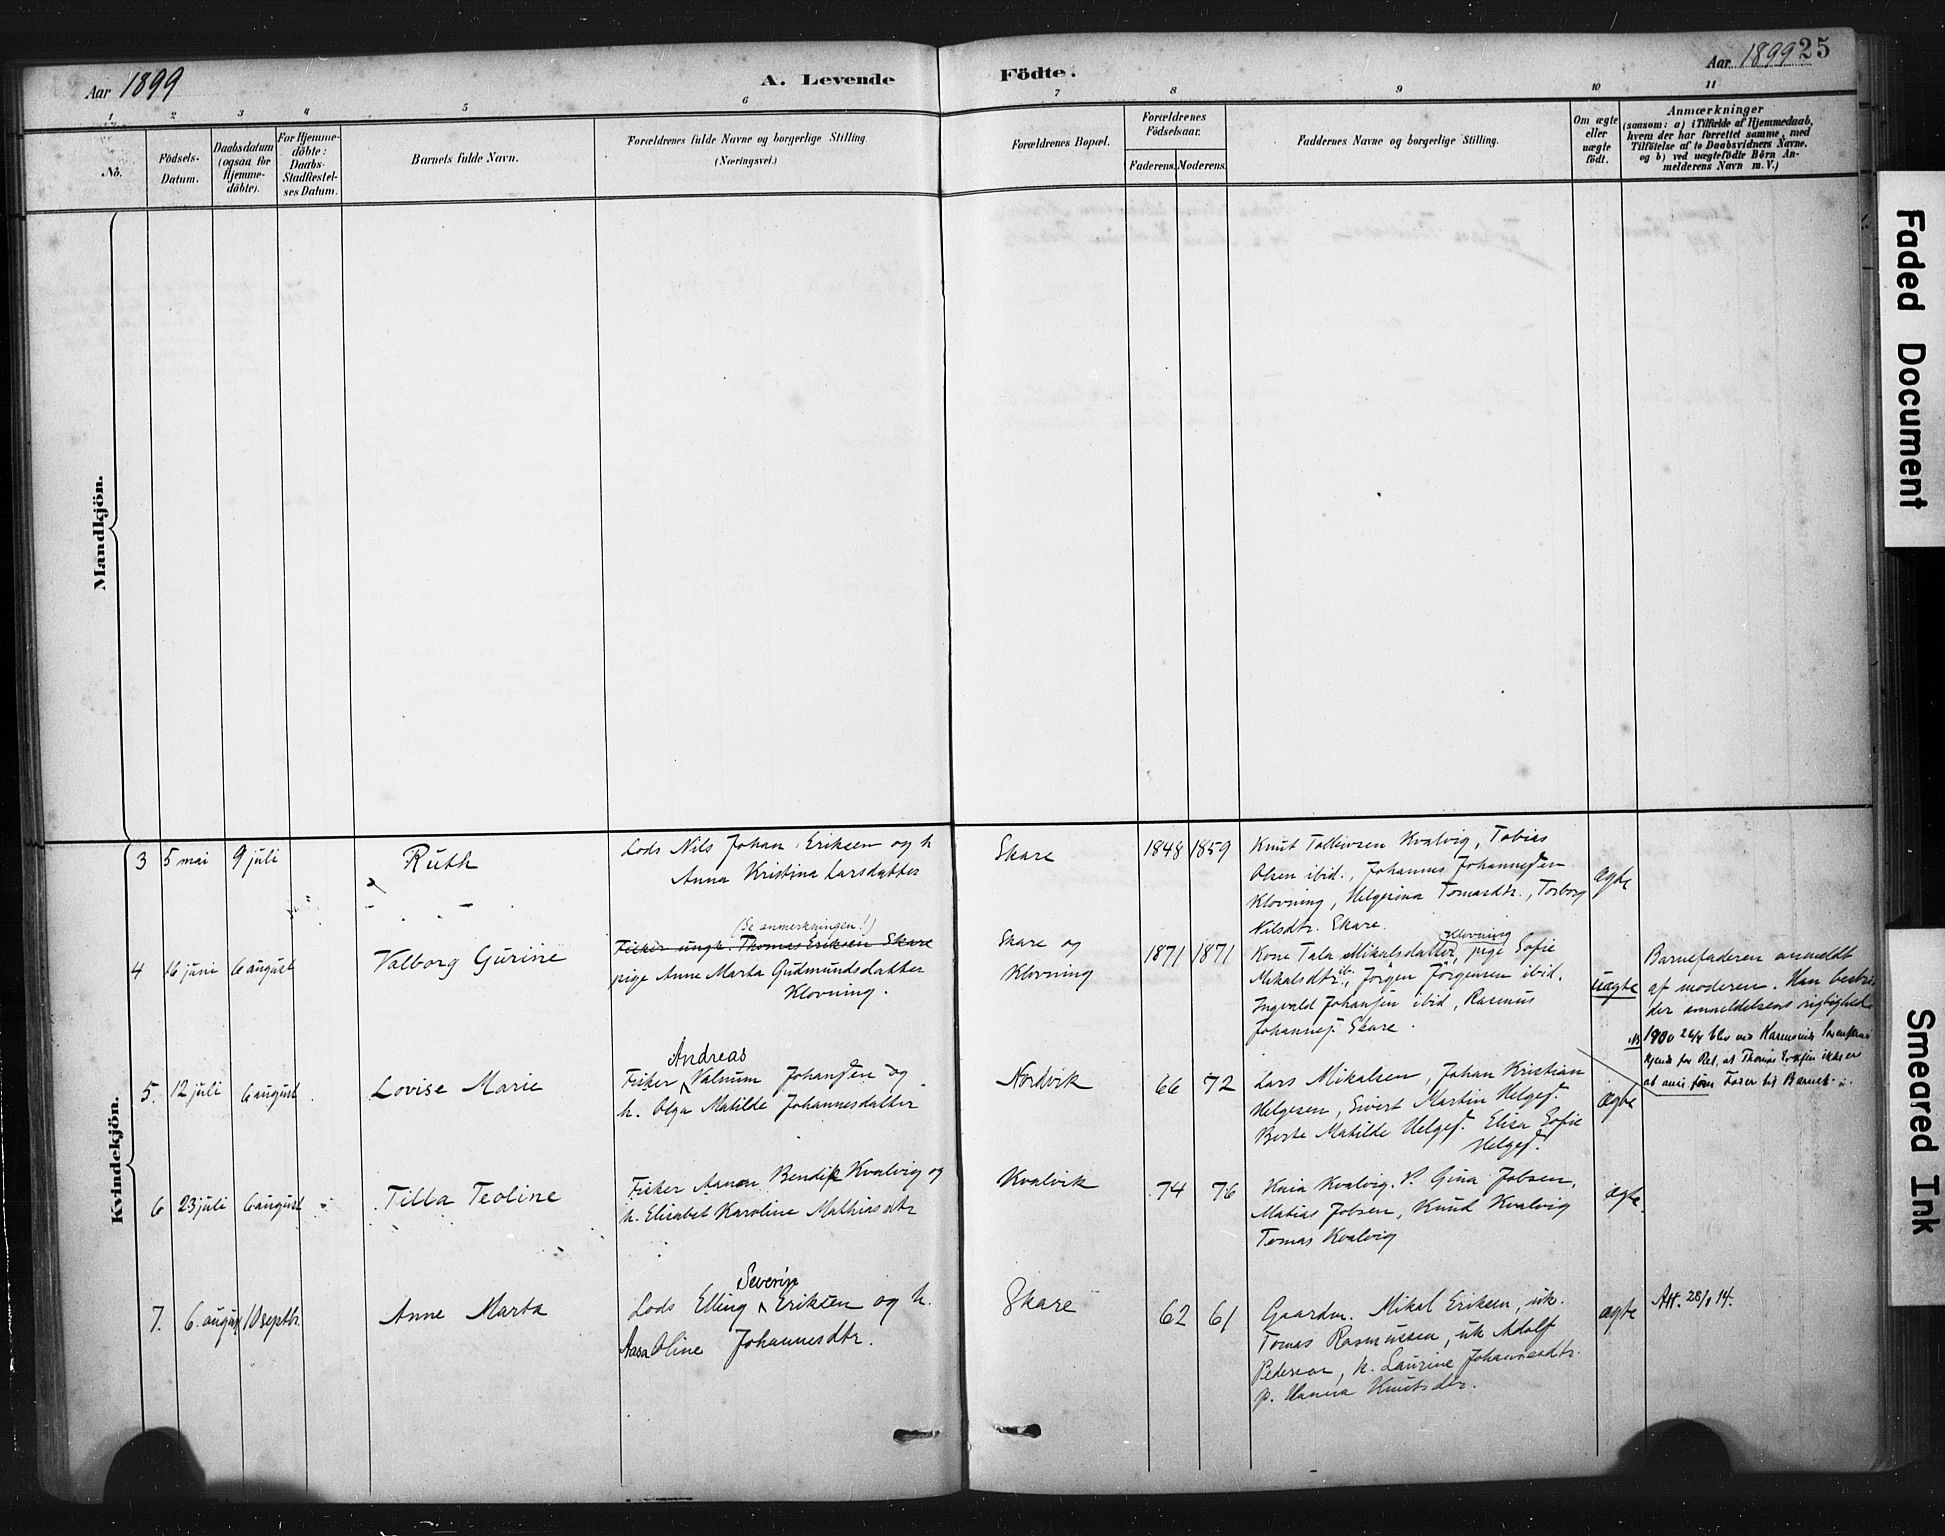 Aar 1899
A. Levende Födte.
Aar 1899 25
1 2 3 4 5 6 7 8 9 10 11
No.
Födsels-Datum.
Daabsdatum (ogsaa for Hjemmedöbte).
For Hjemmedöbte: Daabs-Stadfæstelses Datum.
Barnets fulde Navn.
Forældrenes fulde Navne og borgerlige Stilling (Næringsvei.)
Forældrenes Bopæl.
Forældrenes Födselsaar.
Faderens. Moderens.
Faddernes Navne og borgerlige Stilling.
Om ægte eller uægte födt.
Anmærkninger
(saasom: a) i Tilfælde af Hjemmedaab, hvem der har forrettet samme, med Tilföielse af to Daabsvidners Navne, og b) ved uægtefödte Börn Anmelderens Navn m. V.)
Mandkjön.
Kvindekjön.
3 5 mai 9 juli Ruth
Lods Nils Johan Eriksen og h
Anna Kristina Larsdatter
Skare 1848 1859
Knut Tollevsen Kvalvig, Tobias
Olsen ibid., Johannes Johannesen
Klovning, Helgerina Tomasdtr., Torborg
Nilsdtr. Skare.
ægte
4 16 juni 6 august Valborg Gurine
(Se anmerkningen!)
Fisker ungk. Thomas Eriksen Skare
pige Anne Marta Gudmundsdatter
Klovning.
Skare og
Klovning
1871 1871
Kone Tala Mikalsdatter, Klovning pige Sofie
Mikalsdtr. ib., Jörgen Jörgensen ibid.
Ingvald Johansen ibid, Rasmus
Johannes. Skare.
uægte
Barnefaderen anmeldt
af moderen. Han bestri
der anmeldelsens rigtighed
NB 1900 26/4 blev ved Karmsunds
kjendt for Ret, at Thomas ikke er
at anse som Fader til Barnet
5. 12 juli 6 august Lovise Marie
Andreas
Fisker Valnum Johansen og
h. Olga Matilde Johannesdatter
Nordvik 66 72
Lars Mikalsen, Johan Kristian
Helgesen, Sivert Martin Helges.
Berte Matilde Helges. Elisa Sofie
Helges.
ægte
6 23 juli 6 august Tilla Teoline
Fisker Aanen Bendik Kvalvig og
h. Elisabet Karoline Mathiasdtr
Kvalvik 74 76
Kaia Kvalvig. P. Gina Jobsen,
Matias Jobsen, Knud Kvalvig
Tomas Kvalvig
ægte.
7. 6. august 10 septbr. Anne Marta
Severin
Lods Elling Eriksen og h.
Aasa Oline Johannesdtr.
Skare 62 61
Gaardm. Mikal Eriksen, uk.
Tomas Rasmussen, uk Adolf
Pedersen, k. Laurine Johannesdtr.
p. Hanna Knutsdtr.
ægte
Att. 28/1 14.
Faded Document
Smeared Ink